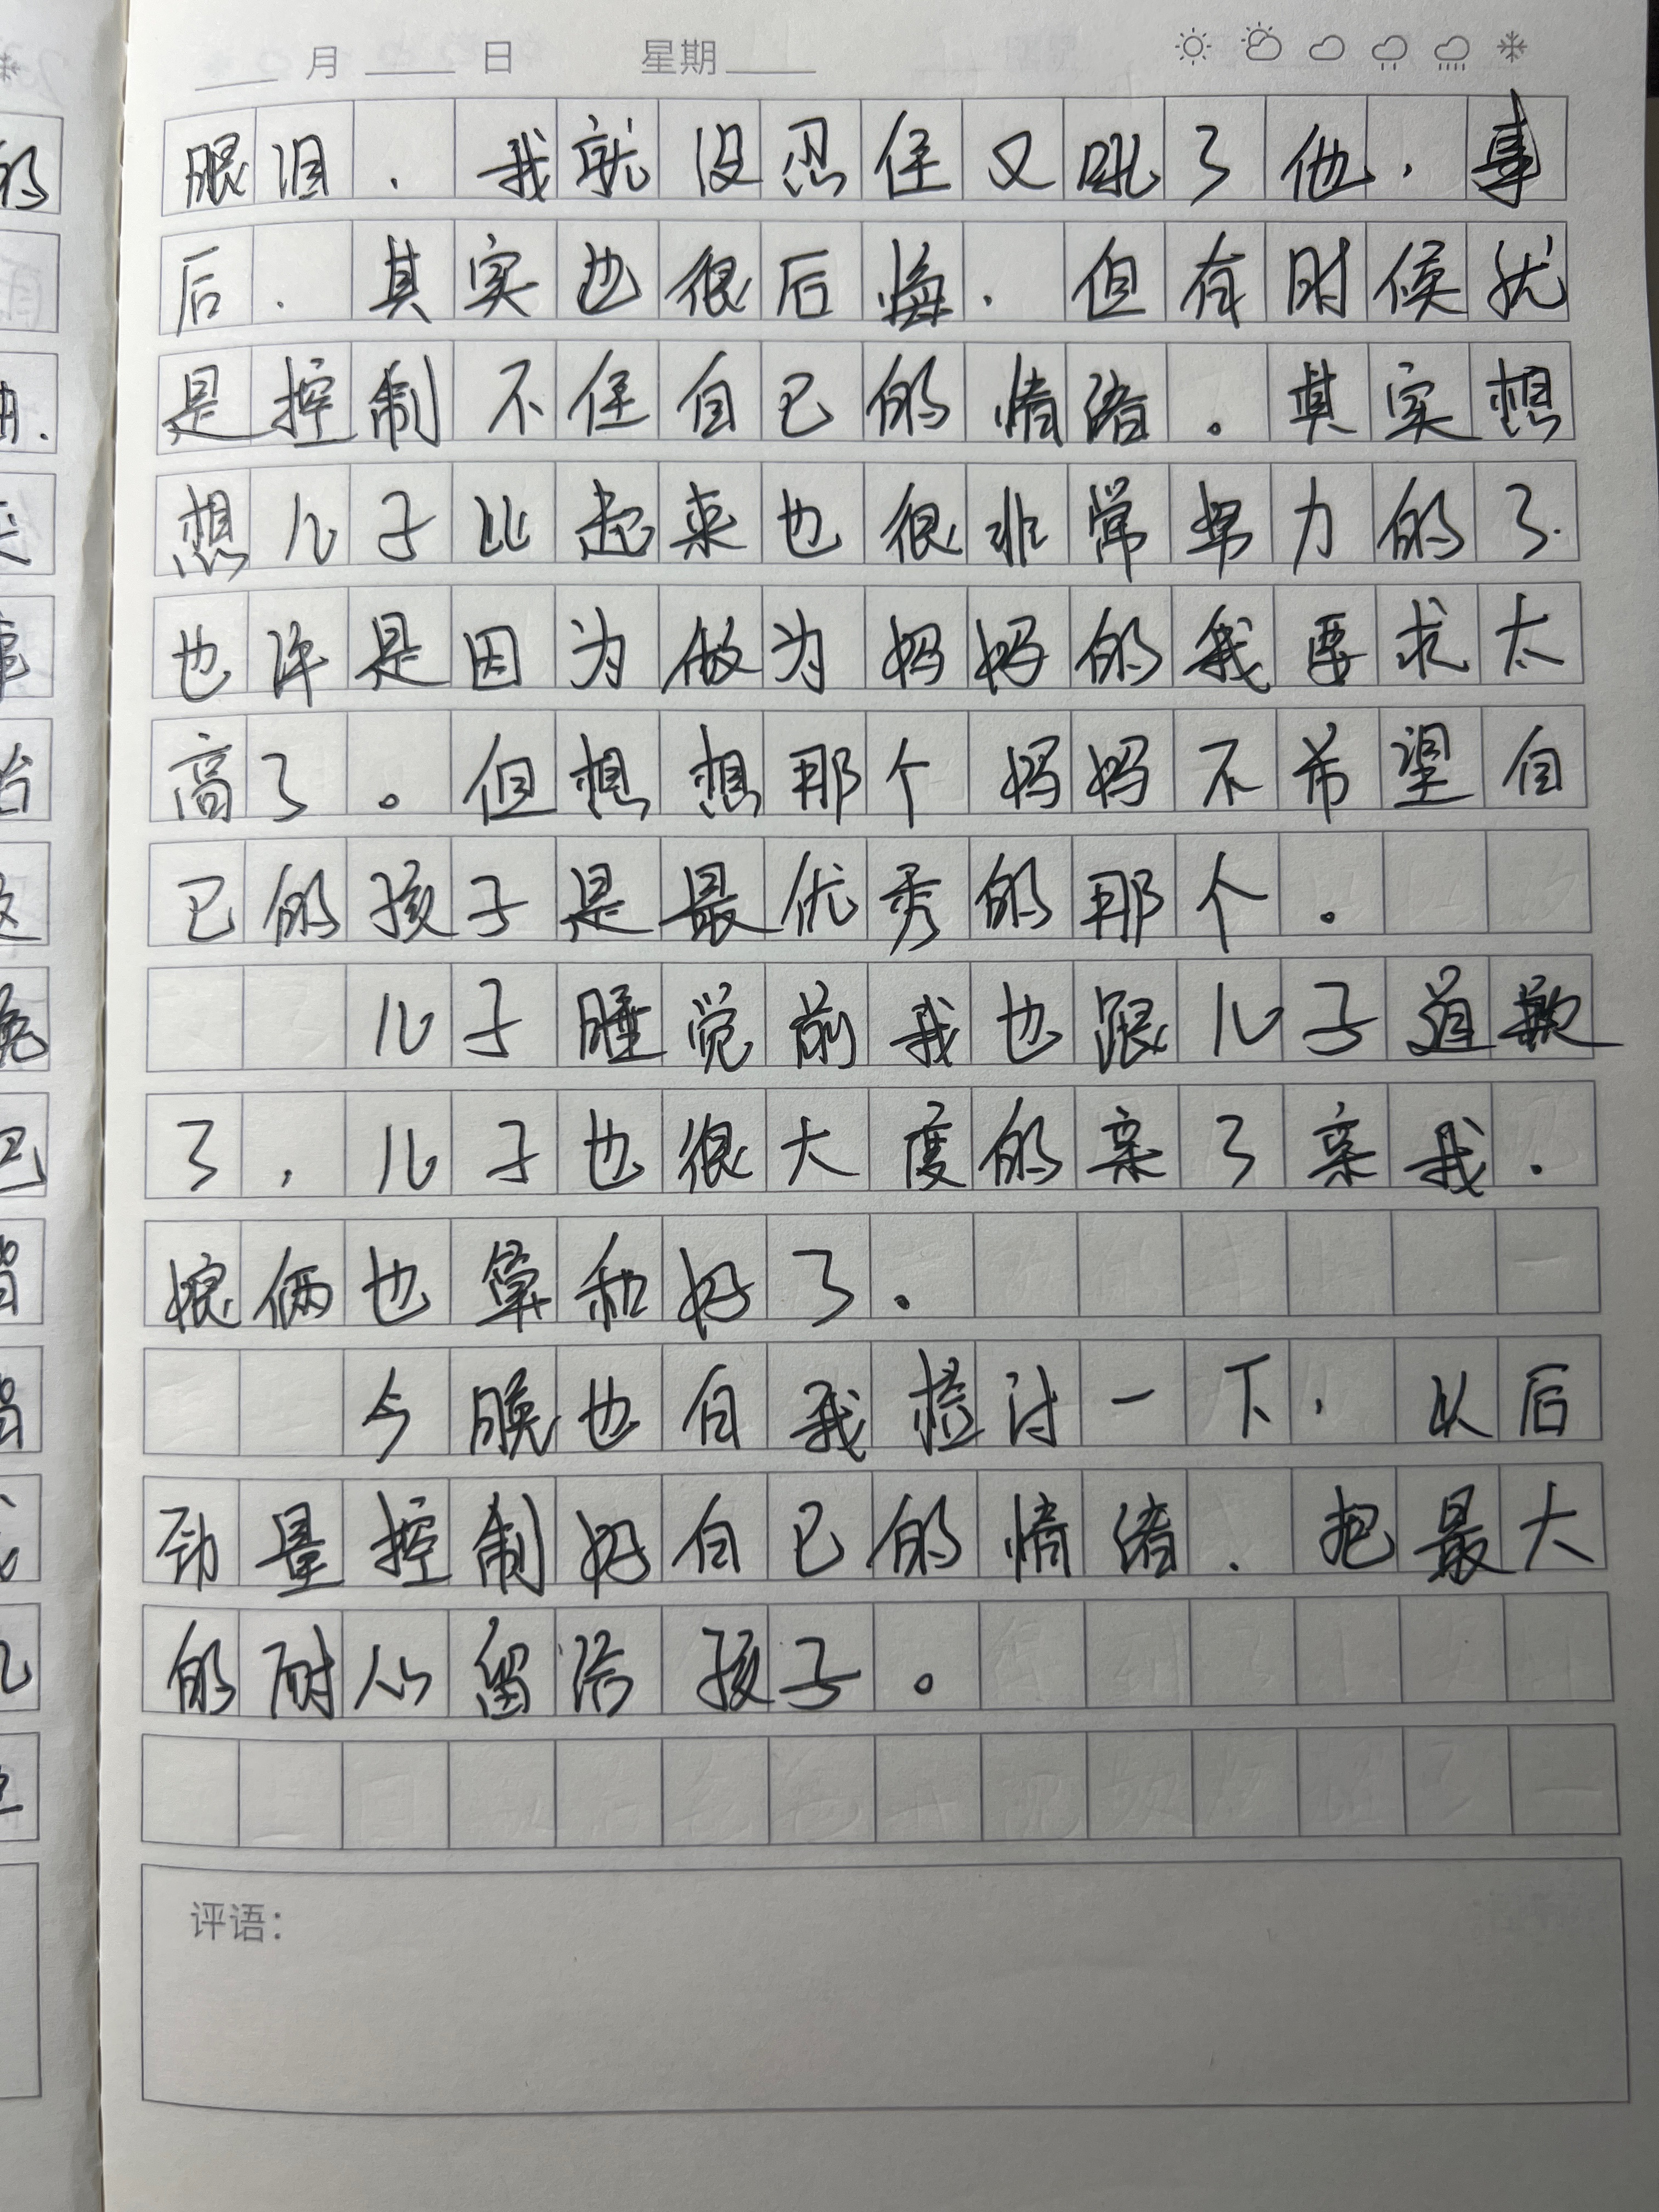 月 日 星期
眼泪，我就没忍住又吼了他，事
后，其实也很后悔，但有时候就
是控制不住自己的情绪。其实想
想儿子比起来也很非常努力的了.
也许是因为做为妈妈的我要求太
高了。但想想那个妈妈不希望自
己的孩子是最优秀的那个。
儿子睡觉前我也跟儿子道歉
了，儿子也很大度的亲了亲我.
娘俩也算和好了。
今晚也自我检讨一下，以后
尽量控制好自己的情绪，把最大
的耐心留给孩子。
评语：